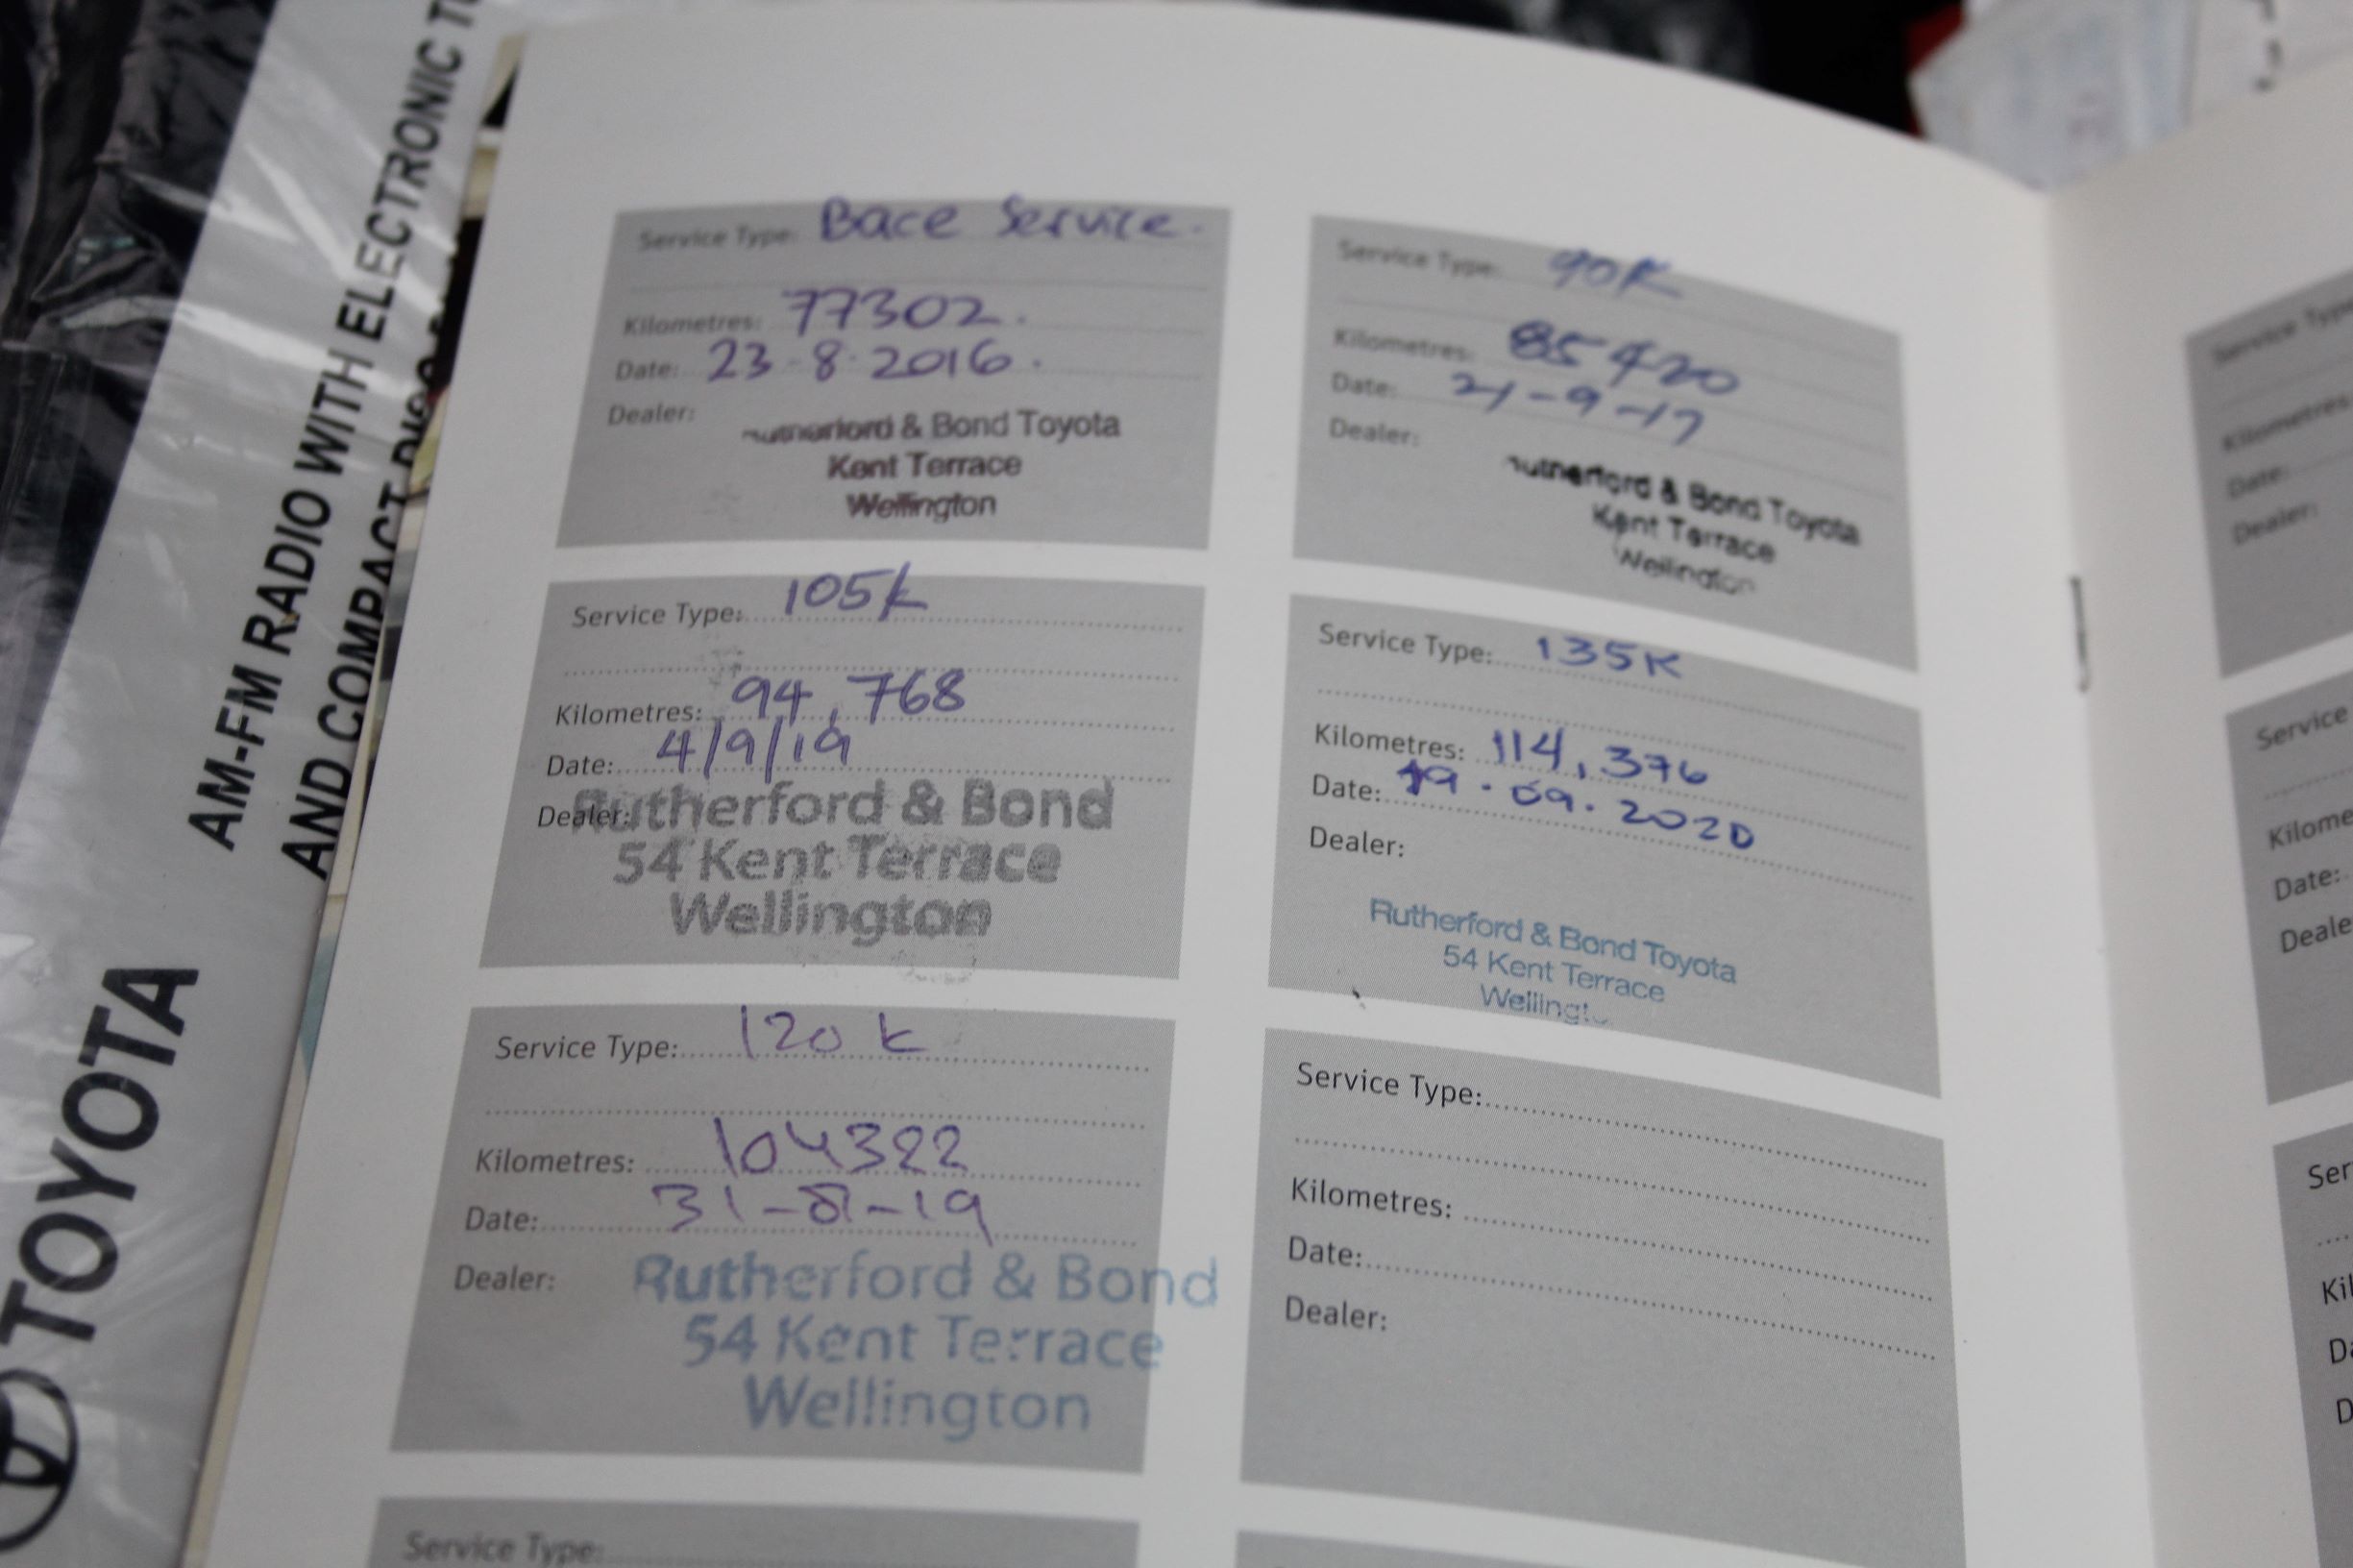 AM-FM RADIO WITH ELECTRONIC
AND COMPACT
TOYOTA
Service Type: Bace Service.
Kilometres: 77302.
Date: 23-8-2016.
Dealer:
Rutherford & Bond Toyota
Kent Terrace
Wellington
Service Type: 90K
Kilometres: 85420
Date: 21-9-17
Dealer:
Rutherford & Bond Toyota
Kent Terrace
Wellington
Service Type: 105k
Kilometres: 94,768
Date: 4/9/19
Dealer:
Rutherford & Bond
54 Kent Terrace
Wellington
Service Type: 135K
Kilometres: 114,376
Date: 19.09.2020
Dealer:
Rutherford & Bond Toyota
54 Kent Terrace
Wellingt
Service Type: 120k
Kilometres: 104322
Date:
Dealer:
Rutherford & Bond
54 Kent Terrace
Wellington
Service Type:
Kilometres:
Date:
Dealer:
Service Type:
Service Type
Kilometres
Date:
Dealer:
Service
Kilome
Date:
Deale
Ser
Kil
Da
D